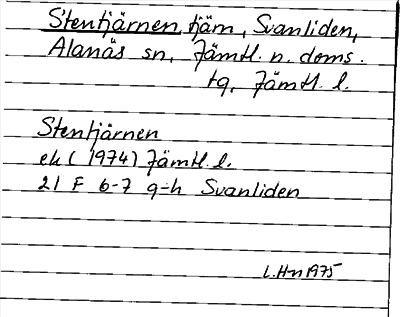 Stentjärnen, tjärn, Svanliden,
Alanäs sn, Jämtl. n. doms.
tg, Jämtl. l.
Stentjärnen
ek (1974) Jämtl. l.
21 F 6-7 g-h Svanliden
L. Hn 1975